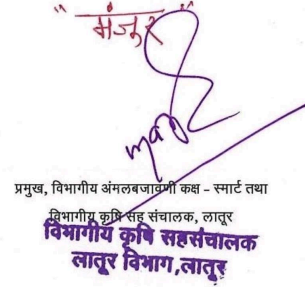 "मंजूर"
प्रमुख, विभागीय अंमलबजावणी कक्ष - स्मार्ट तथा
विभागीय कृषि सह संचालक, लातूर
विभागीय कृषि सहसंचालक
लातूर विभाग,लातूर